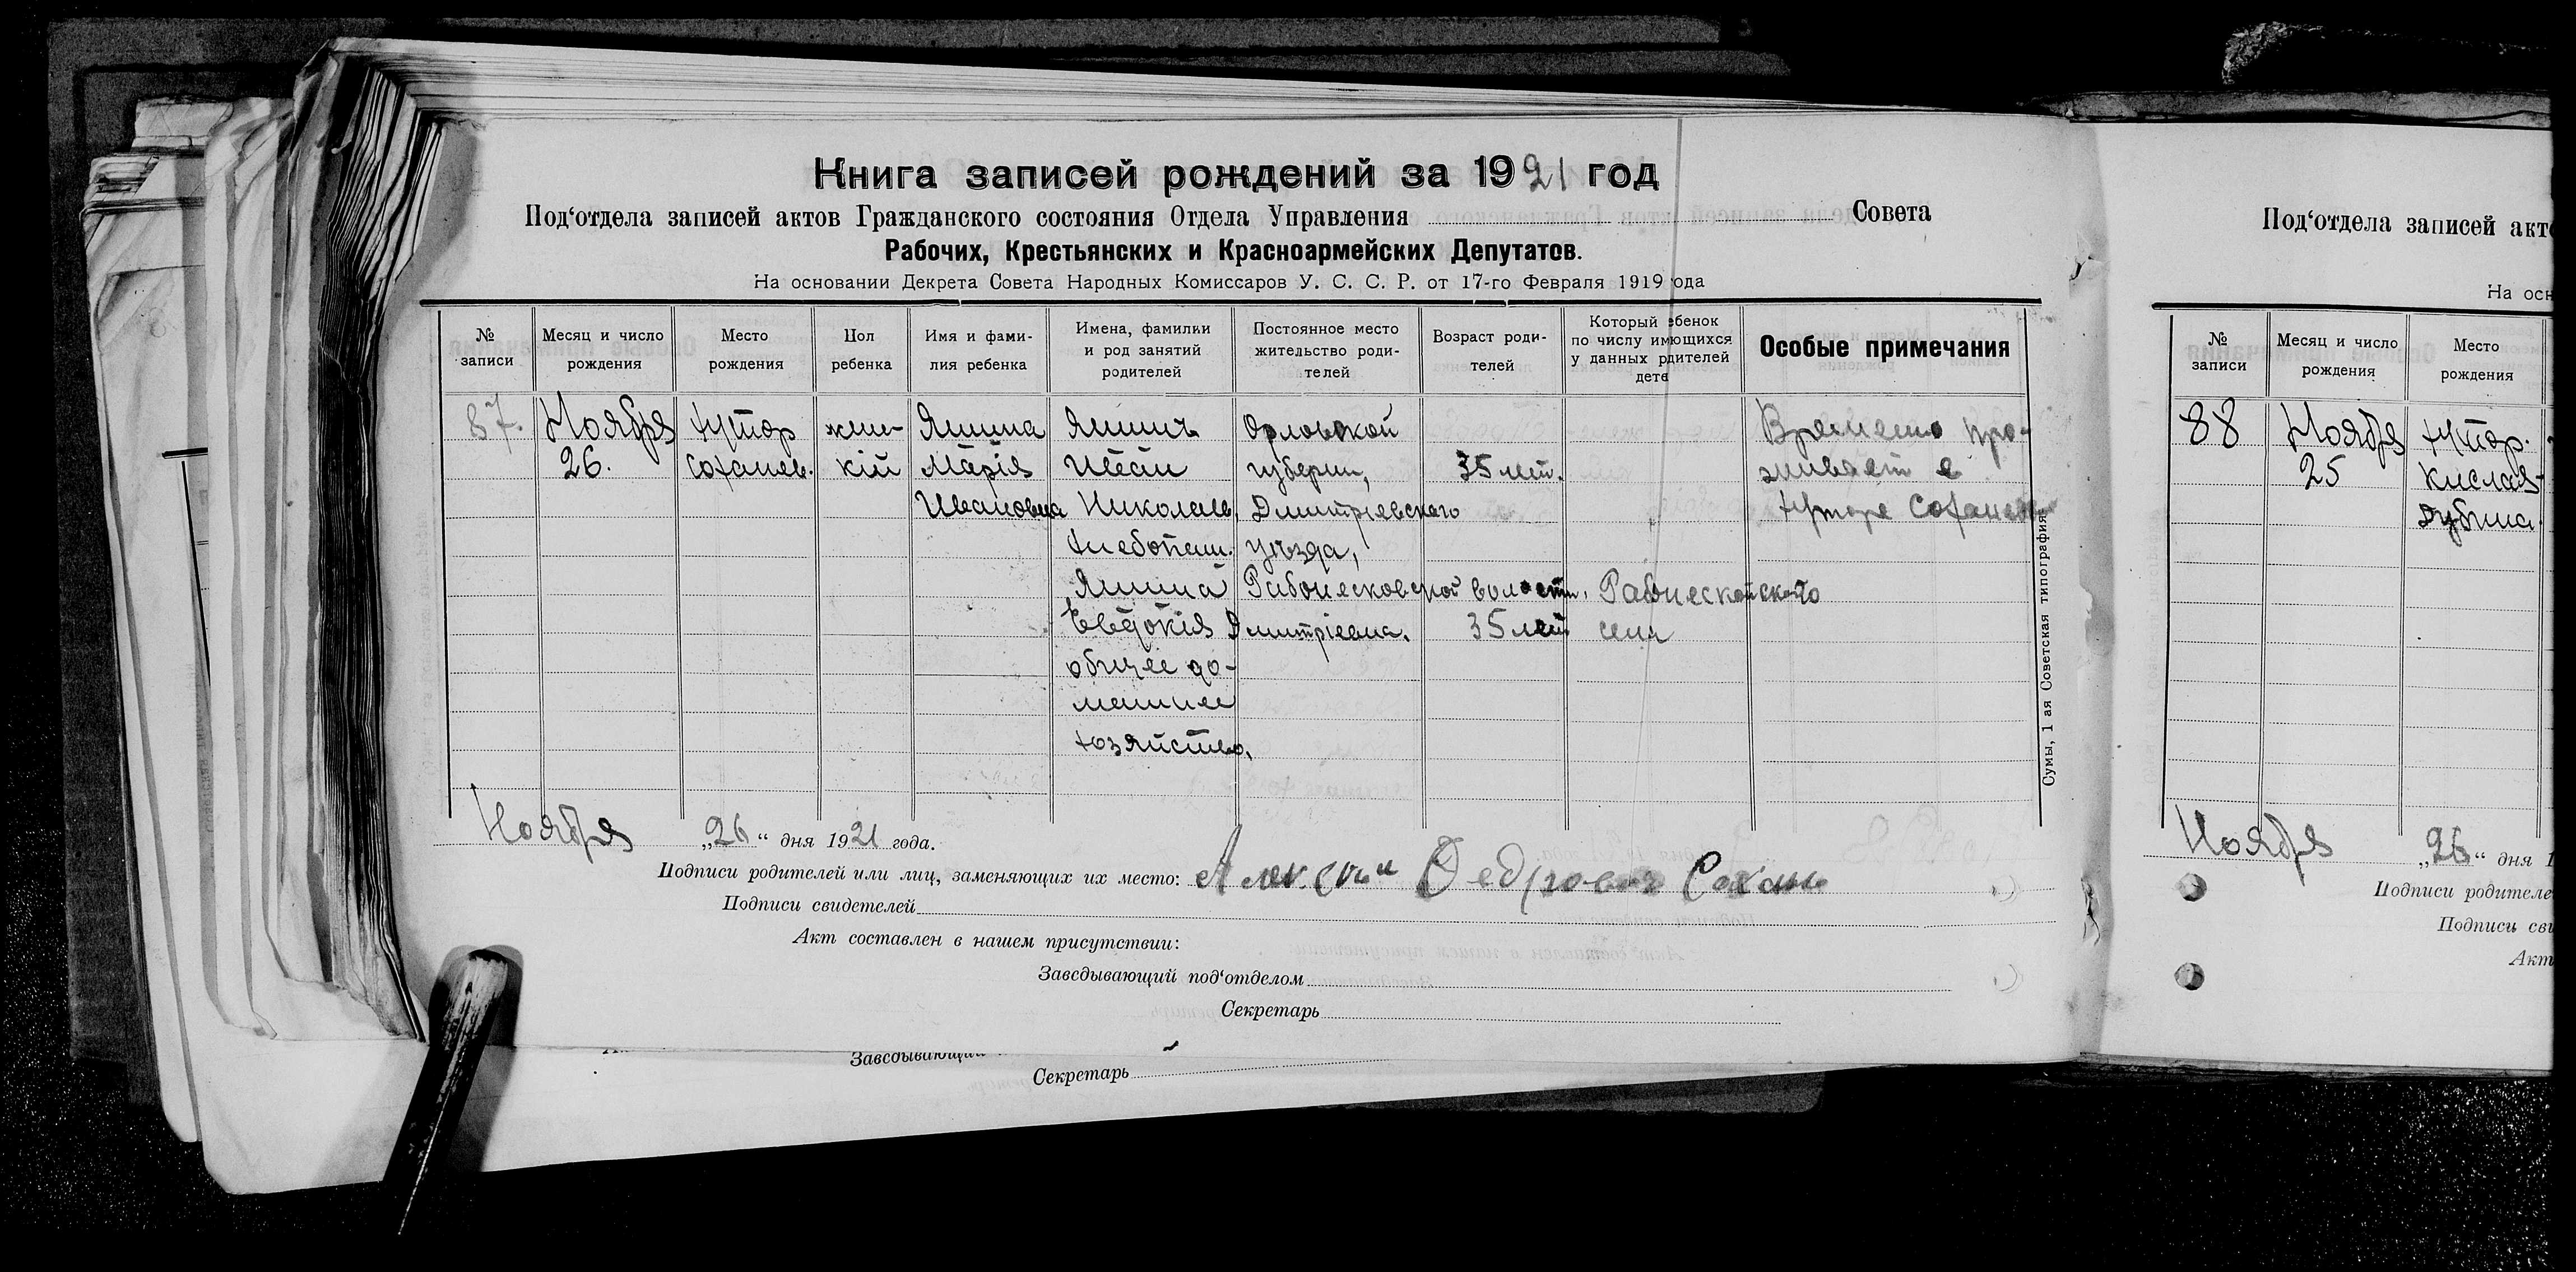 Книга записей рождений за 1921 год
Под‘отдела записей актов Гражданского состояния Отдела Управления Совета
Рабочих, Крестьянских и Красноармейских Депутатов.
На основании Декрета Совета Народных Комиссаров У. С. С. Р. от 17-го Февраля 1919 ода
№ записи
Месяц и число рождения
Место рождения
Пол ребенка
Имя и фами-
лия ребенка
Имена, фамилии
и род занятий
родителей
Постоянное место
жительство роди-
телей
Возраст роди-
телей
Который ебенок
по числу имющихся
у данных рдителей
дете
Особые примечания
87.
Ноября
26.
хутор
Соханев.
жен-
кій
Яшина
Марія
Ивановна
Яшинъ
Иван
Николаев.
хлебопаш.
Яшина
Евдокія Дмитріевна.
общее до-
машнее
хозяйство,
Орловской
губерни,
Дмитріевскаго
уѣзда,
волости,
35 лет.
35 лет
села
Временно про-
живает в
хуторе
Сумы, 1 ая Советская типография
Ноября „26“ дня 1921 года.
Подписи родителей или лиц, заменяющих их место: Алексей
Подписи свидетелей
Акт составлен в нашем присутствии:
Заведывающий под‘отделом
Секретарь
Заведывающий
Секретарь
Под‘отдела записей акт
На осн
№ записи
Месяц и число рождения
Место рождения
88
Ноября
25
хутор.
Кислая
Дубина.
Ноября „26“ дня 1
Подписи родителе
Подписи сви
Акт